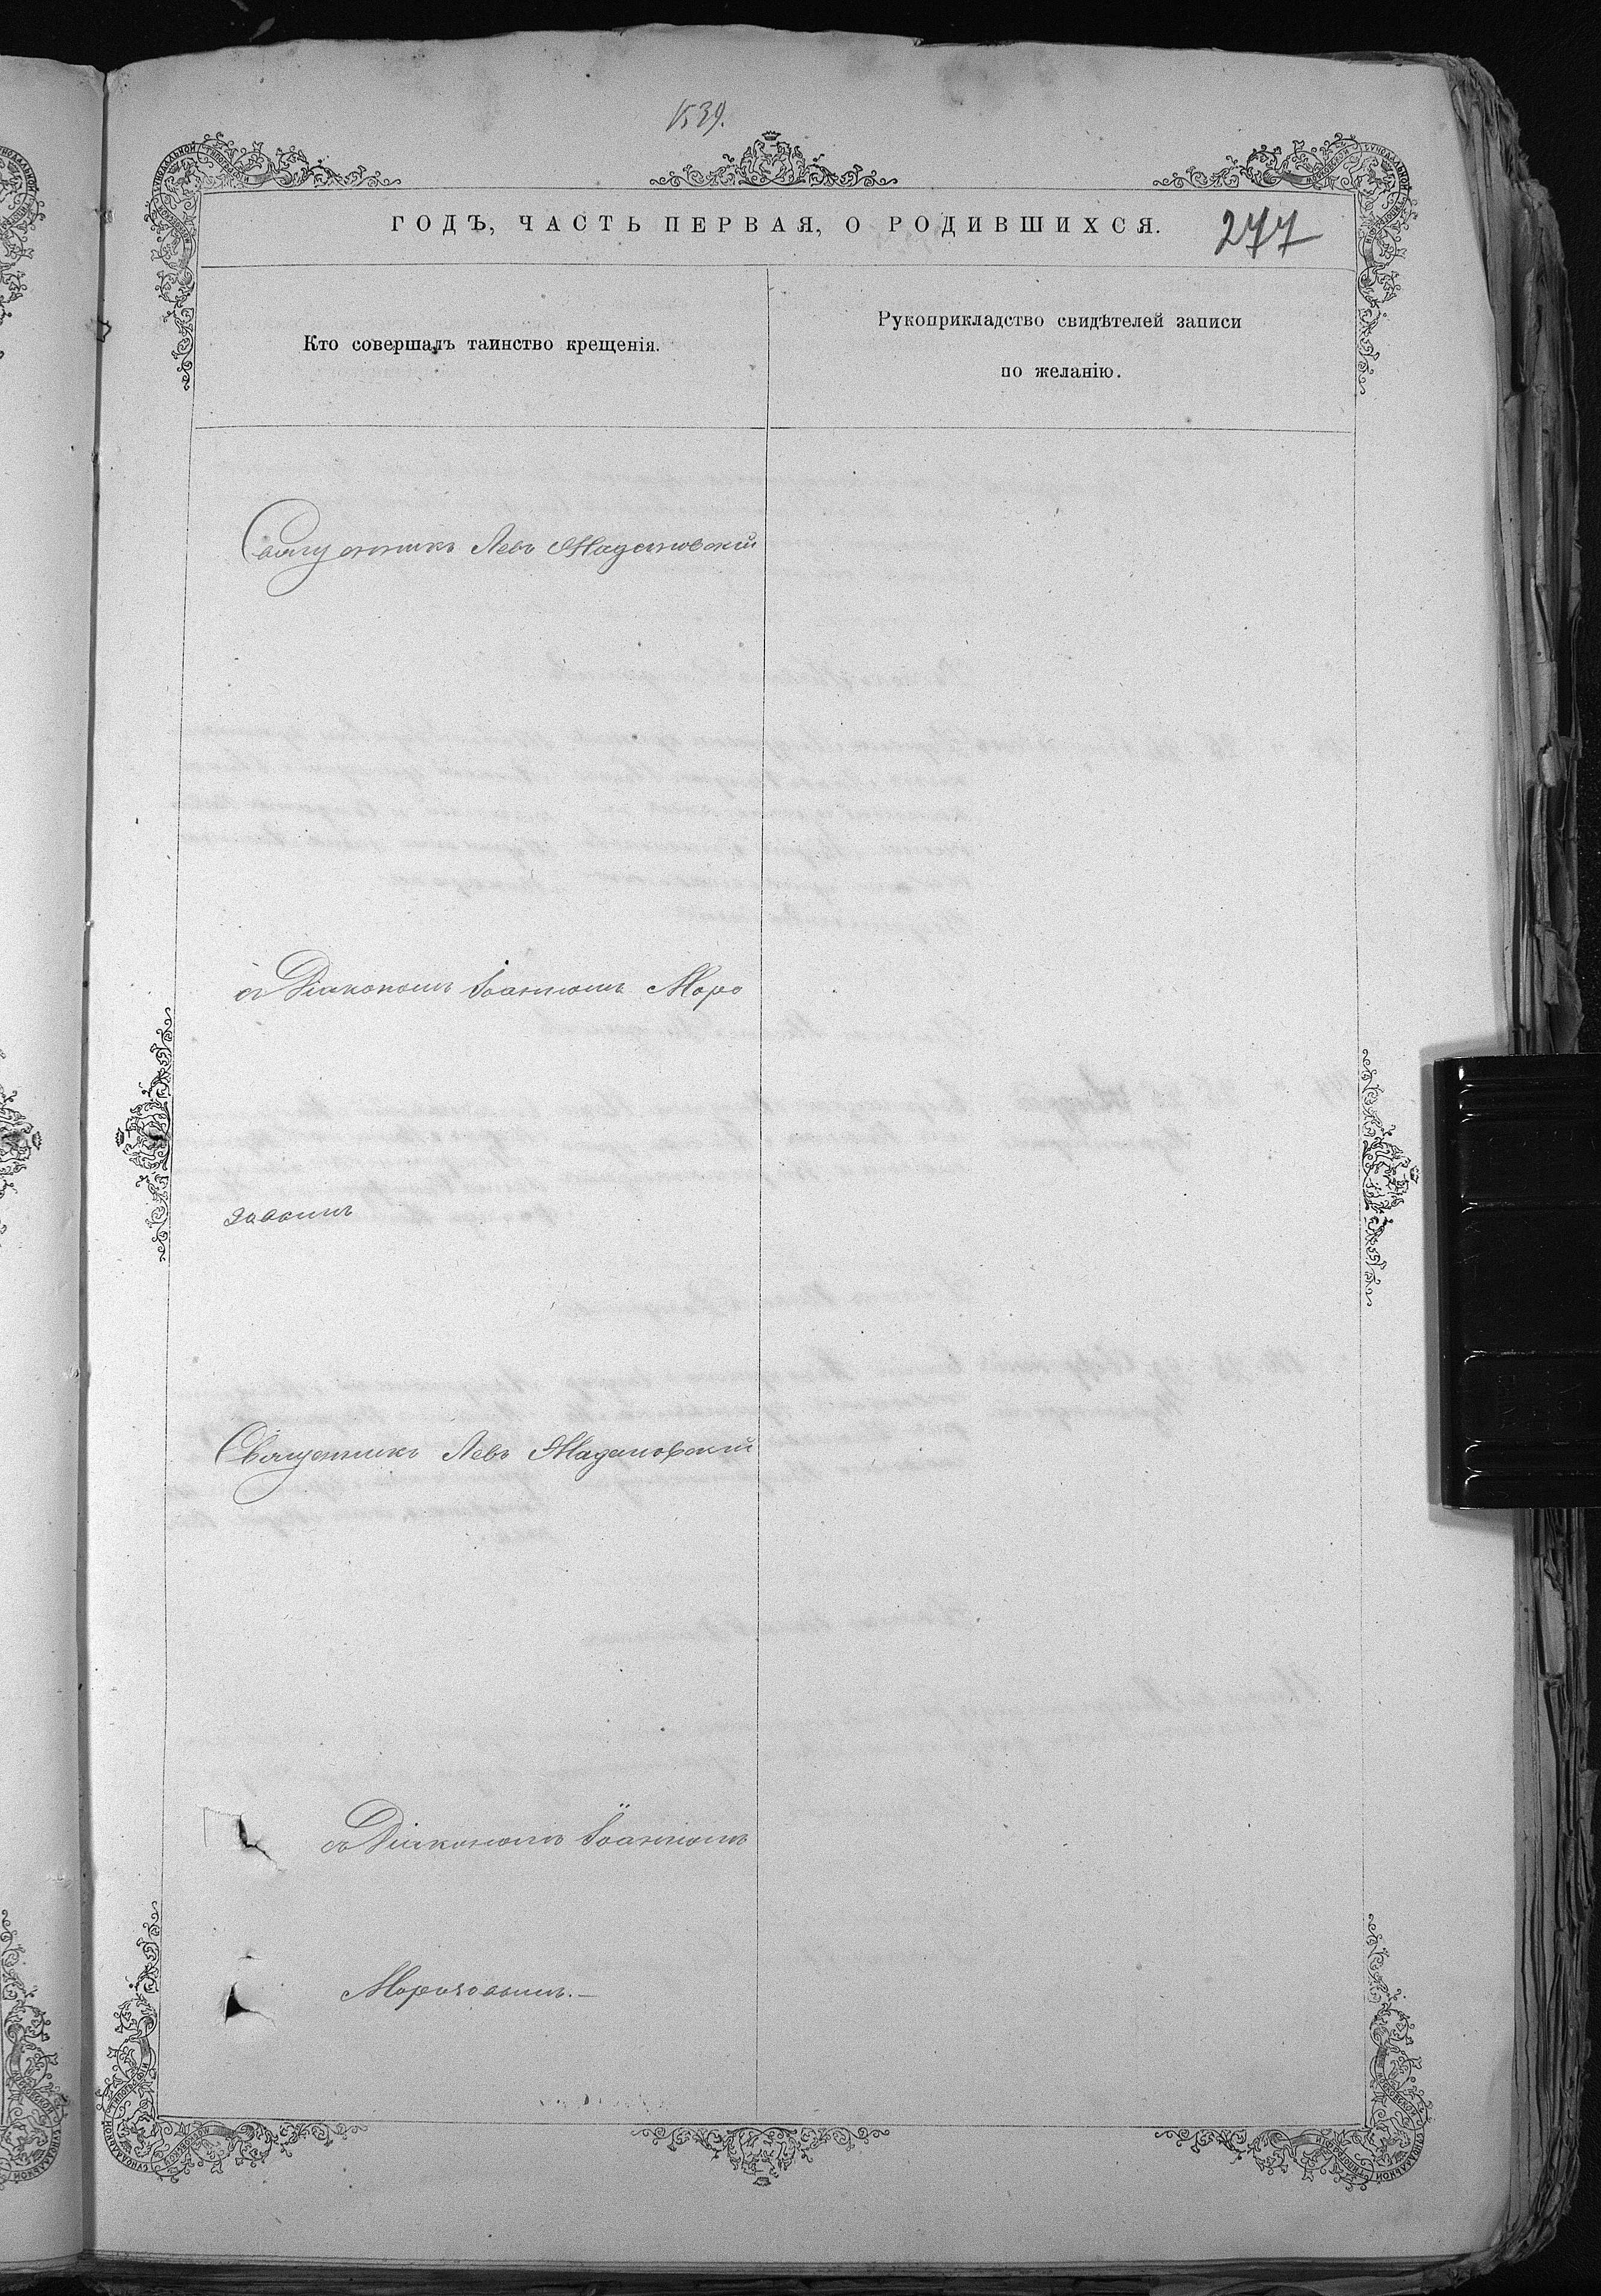 1539.
ГОДЪ, ЧАСТЬ ПЕРВАЯ, О РОДИВШИХСЯ.
277
Кто совершалъ таинство крещенія.
Рукоприкладство свидѣтелей записи
по желанію.
Священникъ Левъ
съ Діакономъ Іоанномъ Моро
зовымъ
Священникъ Левъ
съ Діакономъ Іоанномъ
Морозовымъ.—